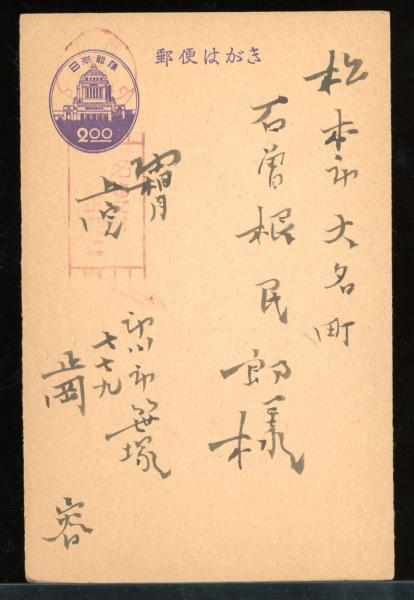 郵便はがき
日本郵便
2.00
松本市大名町
石曽根民郎様
霜月
市川市笹塚
七七九
正岡
容